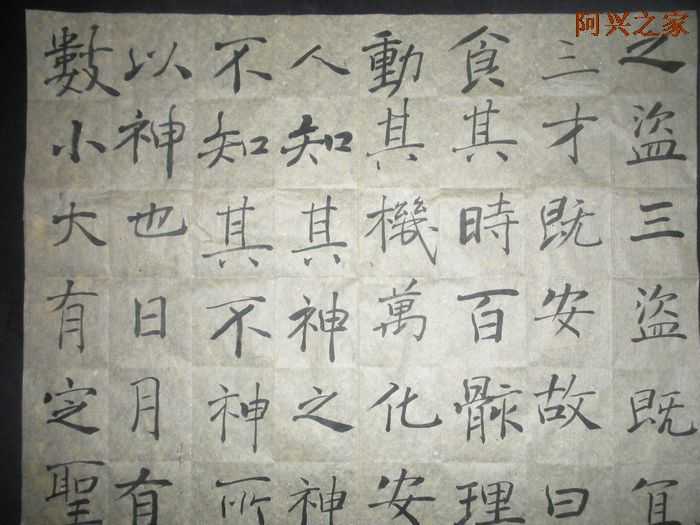 阿兴之家
之盗三盗既宜
三才既安故曰
食其時百骸理
動其機萬化安
人知其神之神
不知其不神所
以神也日月有
數小大有定聖